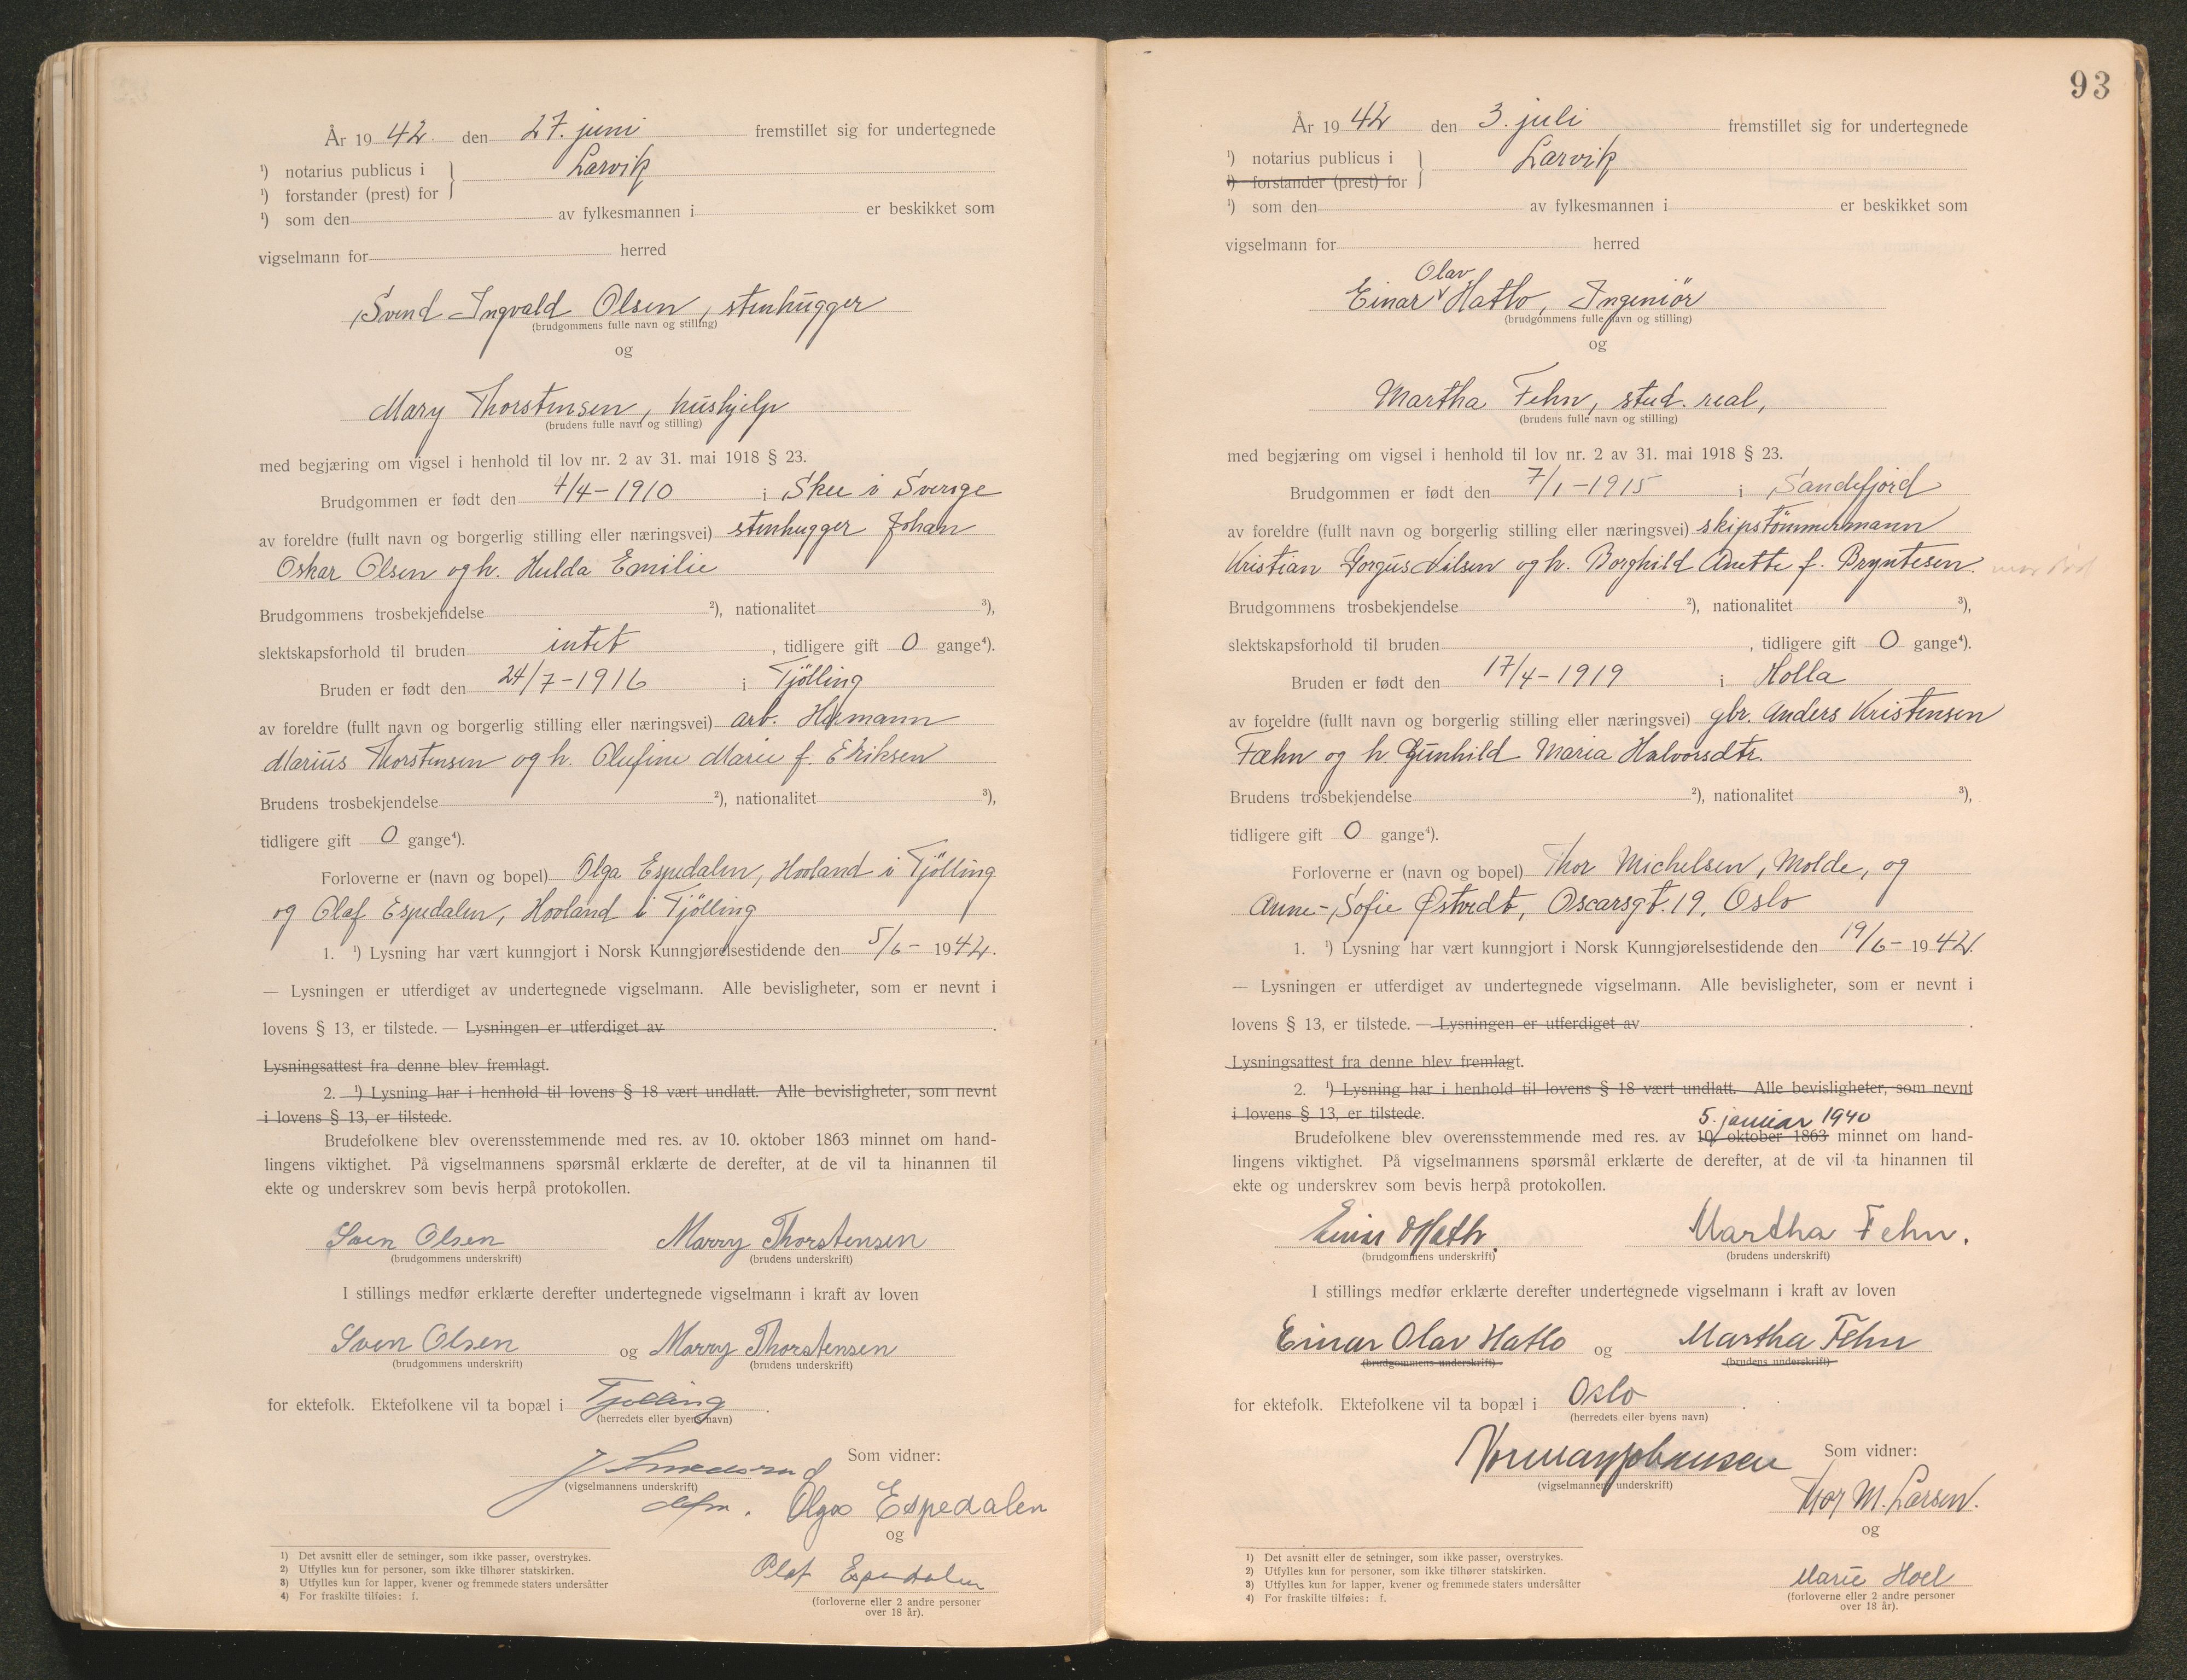 År 1942. den 27. juni fremstillet sig for undertegnede
¹) notarius publicus i } Larvik
¹) forstander (prest) for
¹) som den av fylkesmannen i er beskikket som
vigselmann for herred
Svend Ingvald Olsen, stenhugger
(brudgommens fulle navn og stilling)
og
Mary Thorstensen, hushjelp
(brudens fulle navn og stilling)
med begjæring om vigsel i henhold til lov nr. 2 av 31. mai 1918 § 23.
Brudgommen er født den 7/4-1910 i Skee i Sverige
av foreldre (fullt navn og borgerlig stilling eller næringsvei) stenhugger Johan
Oskar Olsen og h. Hulda Emilie
Brudgommens trosbekjendelse ²), nationalitet ³),
slektskapsforhold til bruden intet, tidligere gift 0 gange⁴).
Bruden er født den 24/7-1916 i Tjölling
av foreldre (fullt navn og borgerlig stilling eller næringsvei) arb. Hermann
Marius Thorstensen og h. Olufine Marie f. Eriksen
Brudens trosbekjendelse ²), nationalitet ³),
tidligere gift 0 gange⁴).
Forloverne er (navn og bopel) Olga Espedalen, Hovland i Tjölling
og Olaf Espedalen, Hovland i Tjölling
1. ¹) Lysning har vært kunngjort i Norsk Kunngjørelsestidende den 5/6- 1942.
— Lysningen er utferdiget av undertegnede vigselmann. Alle bevisligheter, som er nevnt i
lovens § 13, er tilstede. — Lysningen er utferdiget av .
Lysningsattest fra denne blev fremlagt.
2. ¹) Lysning har i henhold til lovens § 18 vært undlatt. Alle bevisligheter, som nevnt
i lovens § 13, er tilstede.
Brudefolkene blev overensstemmende med res. av 10. oktober 1863 minnet om hand-
lingens viktighet. På vigselmannens spørsmål erklærte de derefter, at de vil ta hinannen til
ekte og underskrev som bevis herpå protokollen.
Sven Olsen Marry Thorstensen
(brudgommens underskrift) (brudens underskrift)
I stillings medfør erklærte derefter undertegnede vigselmann i kraft av loven
Sven Olsen og Marry Thorstensen
(brudgommens underskrift) (brudens underskrift)
for ektefolk. Ektefolkene vil ta bopæl i Tjølling.
(herredets eller byens navn)
Som vidner:
(vigselmannens underskrift)
Olga Espedalen
og
Olaf Espedalen
(forloverne eller 2 andre personer
over 18 år).
1) Det avsnitt eller de setninger, som ikke passer, overstrykes.
2) Utfylles kun for personer, som ikke tilhører statskirken.
3) Utfylles kun for lapper, kvener og fremmede staters undersåtter
4) For fraskilte tilføies: f.
93
År 1942 den 3. juli fremstillet sig for undertegnede
¹) notarius publicus i } Larvik
¹) forstander (prest) for
¹) som den av fylkesmannen i er beskikket som
vigselmann for herred
Olav
Einar Hatlo, Ingeniör
(brudgommens fulle navn og stilling)
og
Martha Fehn, stud. real,
(brudens fulle navn og stilling)
med begjæring om vigsel i henhold til lov nr. 2 av 31. mai 1918 § 23.
Brudgommen er født den 7/1-1915 i Sandefjord
av foreldre (fullt navn og borgerlig stilling eller næringsvei) skipstömmermann
Kristian Gorgus Nilsen og h. Borghild Anette f. Bryntesen.
Brudgommens trosbekjendelse ²), nationalitet ³),
slektskapsforhold til bruden , tidligere gift 0 gange⁴).
Bruden er født den 17/4-1919 i Holla
av foreldre (fullt navn og borgerlig stilling eller næringsvei) gbr. Anders Kristensen
Fæhn og h. Gunhild Maria Halvorsdtr.
Brudens trosbekjendelse ²), nationalitet ³),
tidligere gift 0 gange⁴).
Forloverne er (navn og bopel) Thor Michelsen, Molde, og
Anne-Sofie Østvedt, Oscarsgt. 19, Oslo
1. ¹) Lysning har vært kunngjort i Norsk Kunngjørelsestidende den 19/6- 1942.
— Lysningen er utferdiget av undertegnede vigselmann. Alle bevisligheter, som er nevnt i
lovens § 13, er tilstede. — Lysningen er utferdiget av .
Lysningsattest fra denne blev fremlagt.
2. ¹) Lysning har i henhold til lovens § 18 vært undlatt. Alle bevisligheter, som nevnt
i lovens § 13, er tilstede.
5. januar 1940
Brudefolkene blev overensstemmende med res. av 10. oktober 1863 minnet om hand-
lingens viktighet. På vigselmannens spørsmål erklærte de derefter, at de vil ta hinannen til
ekte og underskrev som bevis herpå protokollen.
Einar O Hatlo. Martha Fehn.
(brudgommens underskrift) (brudens underskrift)
I stillings medfør erklærte derefter undertegnede vigselmann i kraft av loven
Einar Olav Hatlo og Martha Fehn
(brudgommens underskrift) (brudens underskrift)
for ektefolk. Ektefolkene vil ta bopæl i Oslo.
(herredets eller byens navn)
Som vidner:
(vigselmannens underskrift)
Thor M. Larsen.
og
Marie Hoel
(forloverne eller 2 andre personer
over 18 år).
1) Det avsnitt eller de setninger, som ikke passer, overstrykes.
2) Utfylles kun for personer, som ikke tilhører statskirken.
3) Utfylles kun for lapper, kvener og fremmede staters undersåtter
4) For fraskilte tilføies: f.